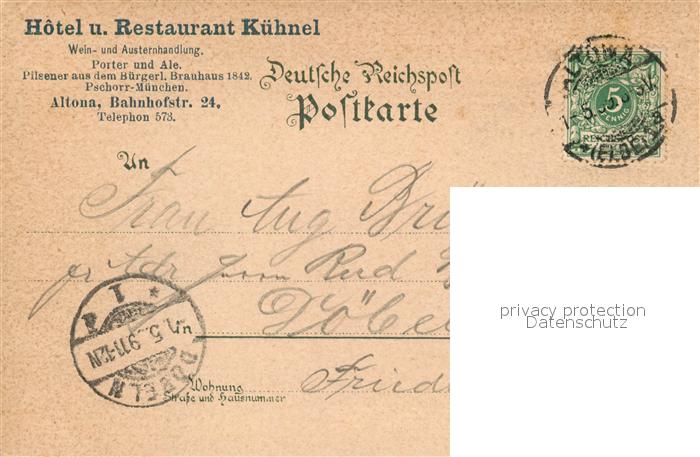 Hôtel u. Restaurant Kühnel
Wein- und Austernhandlung.
Porter und Ale.
Pilsener aus dem Bürgerl. Brauhaus 1842.
Pschorr-München.
Altona, Bahnhofstr. 24,
Telephon 573.
Deutsche Reichspost
Postkarte
ALTONA
(ELBE)
5
PFENNIG
REICHSPOST
An
Frau Aug Brü
pr Adr Rud
in Döbe
DÖBELN
Wohnung
Straße und Hausnummer
Fried
privacy protection
Datenschutz